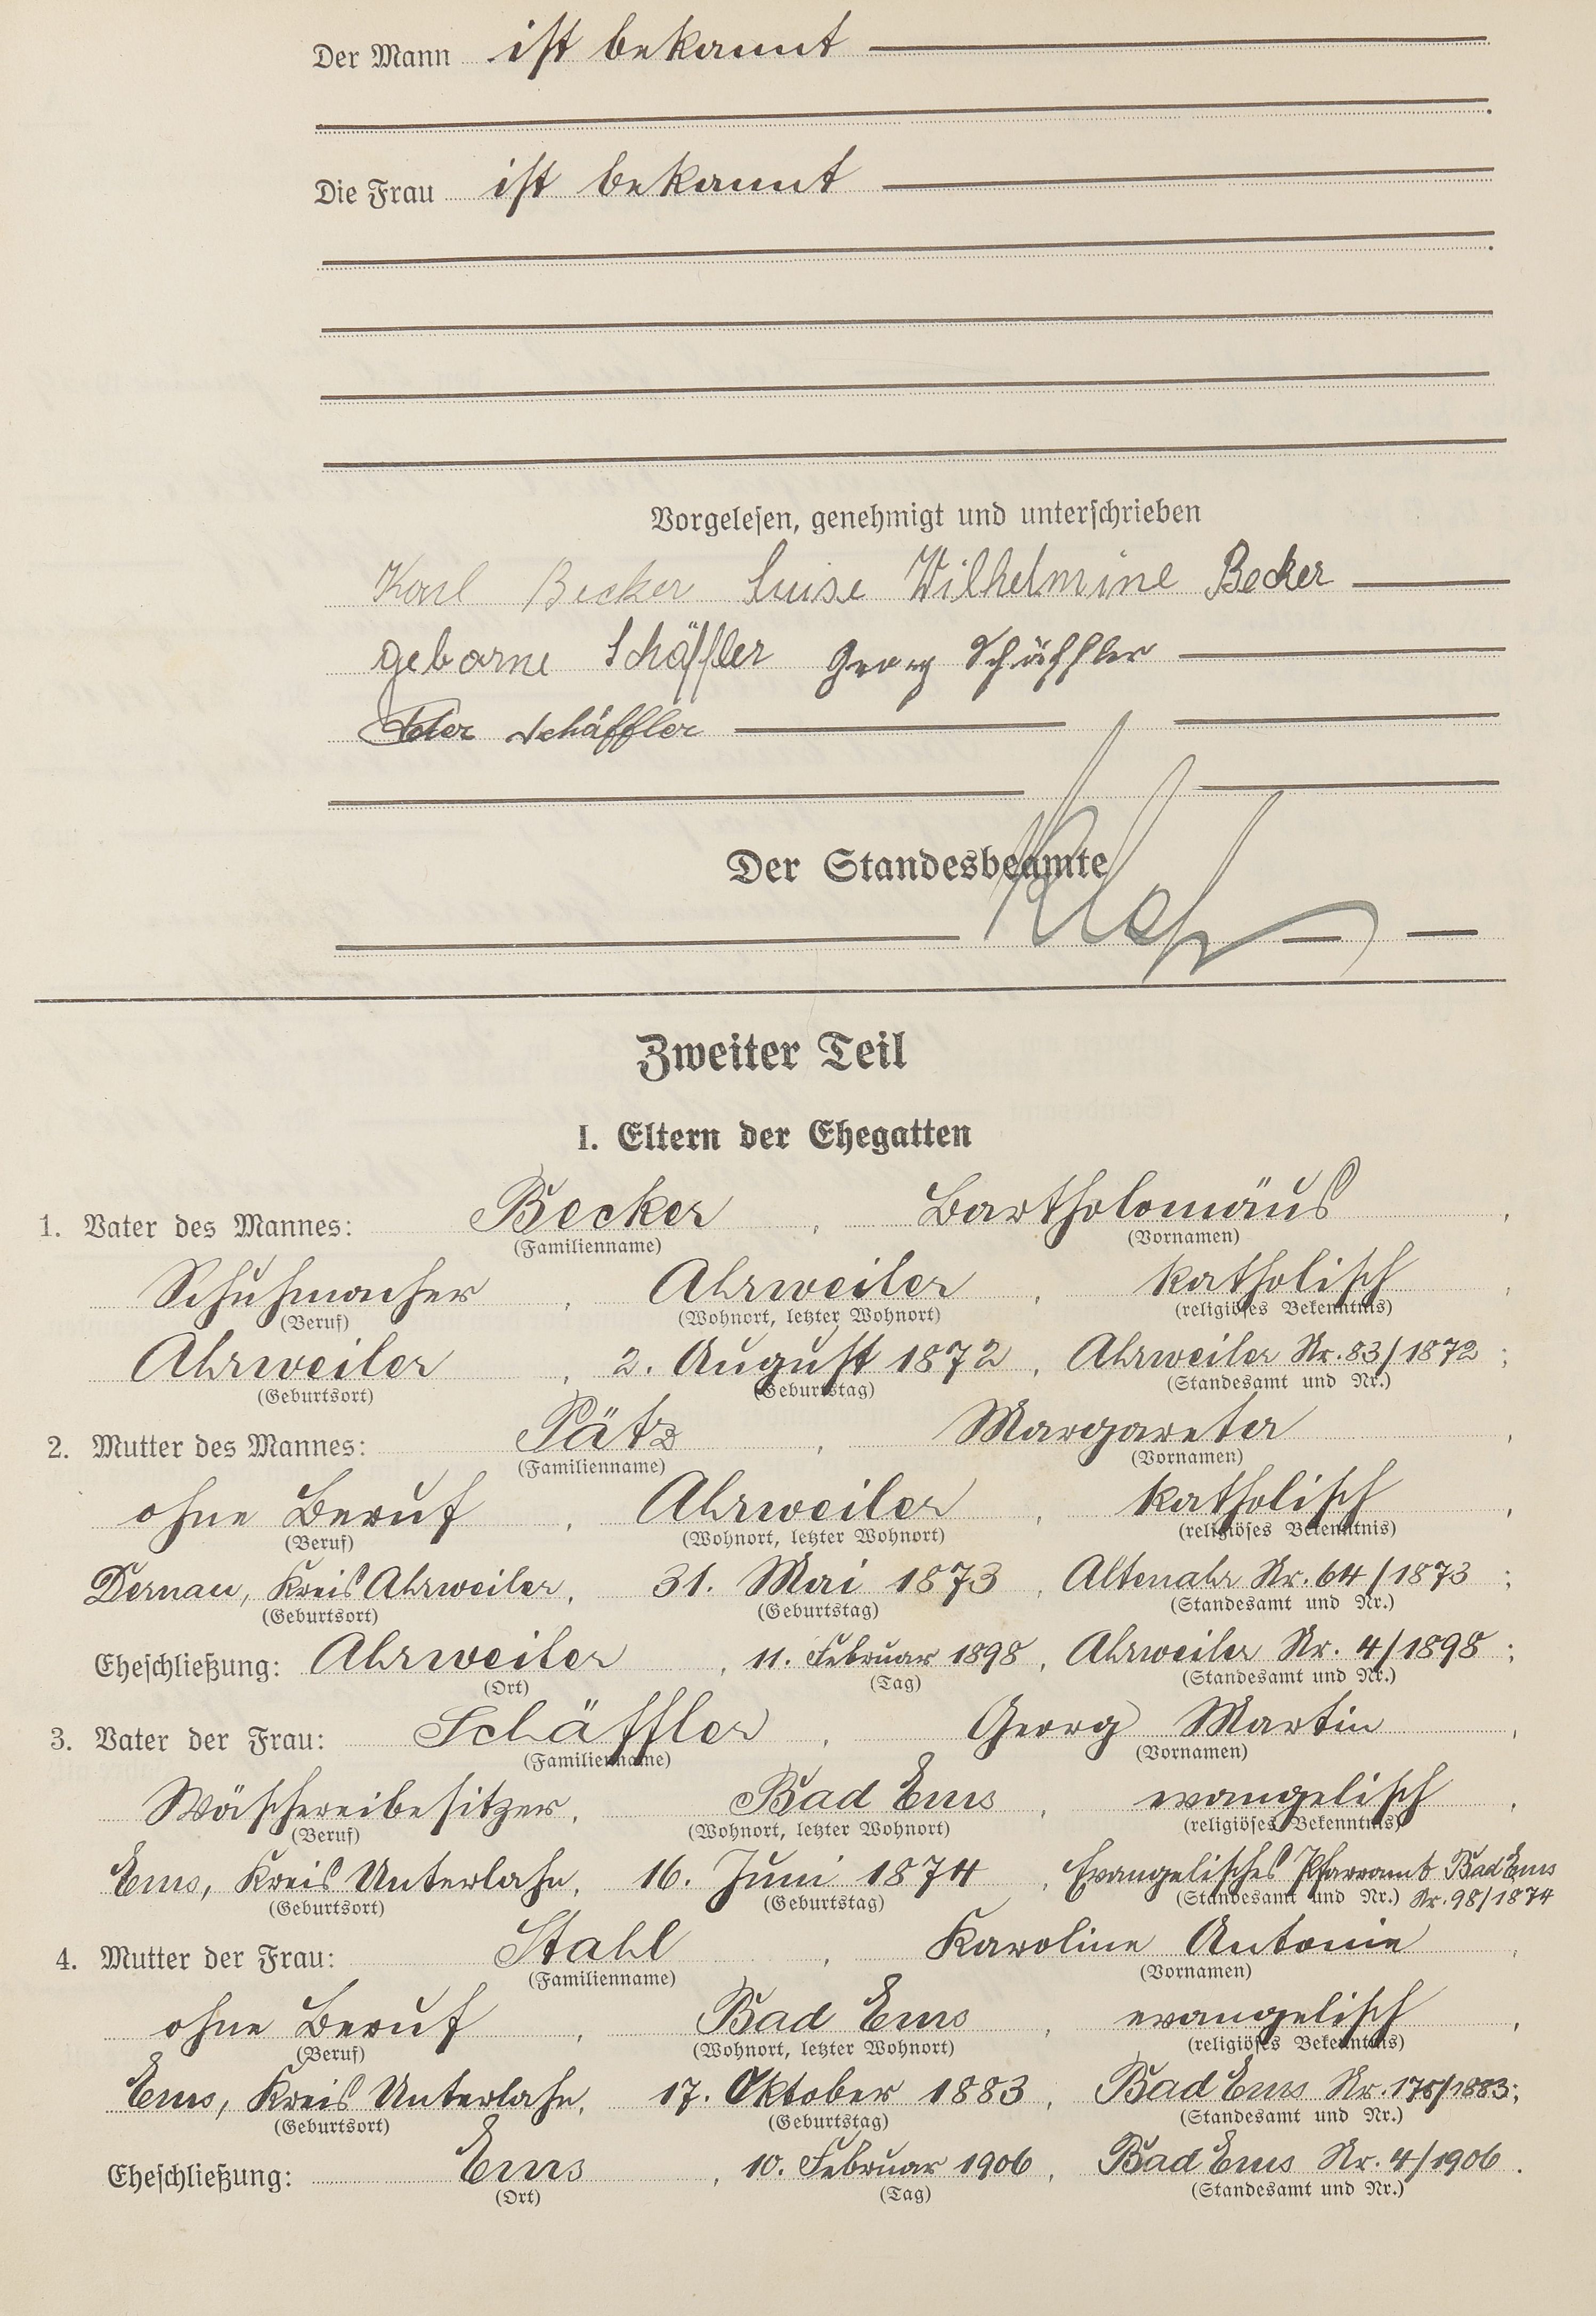 Der Mann ist bekannt
Die Frau ist bekannt
Vorgelesen, genehmigt und unterschrieben
Karl Becker Luise Wilhelmine Becker
geborne Schäffler Georg Schäffler
Peter Schäffler
Der Standesbeamte
Zweiter Teil
I. Eltern der Ehegatten
1. Vater des Mannes: Becker, Bartholomäus,
(Familienname) (Vornamen)
Schuhmacher, Ahrweiler, katholisch,
(Beruf) (Wohnort, letzter Wohnort) (religiöses Bekenntnis)
Ahrweiler, 2. August 1872, Ahrweiler Nr. 83/1872;
(Geburtsort) (Geburtstag) (Standesamt und Nr.)
2. Mutter des Mannes: Pätz, Margareta,
(Familienname) (Vornamen)
ohne Beruf, Ahrweiler, katholisch,
(Beruf) (Wohnort, letzter Wohnort) (religiöses Bekenntnis)
Dernau, Kreis Ahrweiler, 31. Mai 1873, Altenahr Nr. 64/1873;
(Geburtsort) (Geburtstag) (Standesamt und Nr.)
Eheschließung: Ahrweiler, 11. Februar 1898, Ahrweiler Nr. 4/1898;
(Ort) (Tag) (Standesamt und Nr.)
3. Vater der Frau: Schäffler, Georg Martin,
(Familienname) (Vornamen)
Wäschereibesitzer, Bad Ems, evangelisch,
(Beruf) (Wohnort, letzter Wohnort) (religiöses Bekenntnis)
Ems, Kreis Unterlahn, 16. Juni 1874, Evangelisches Pfarramt Bad Ems
(Geburtsort) (Geburtstag) (Standesamt und Nr.) Nr. 98/1874
4. Mutter der Frau: Stahl, Karoline Antonie,
(Familienname) (Vornamen)
ohne Beruf, Bad Ems, evangelisch,
(Beruf) (Wohnort, letzter Wohnort) (religiöses Bekenntnis)
Ems, Kreis Unterlahn, 17. Oktober 1883, Bad Ems Nr. 175/1883;
(Geburtsort) (Geburtstag) (Standesamt und Nr.)
Eheschließung: Ems, 10. Februar 1906, Bad Ems Nr. 4/1906.
(Ort) (Tag) (Standesamt und Nr.)